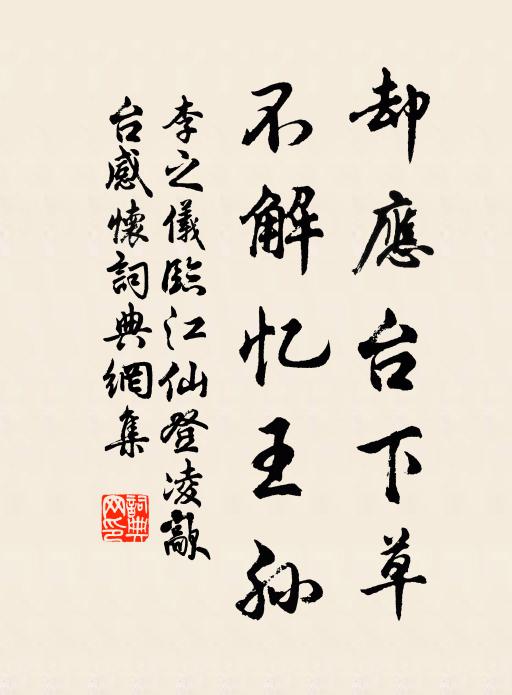 却應台下草
不解忆王孙
李之儀臨江仙登凌歊
台感懷詞典網集
詞典网印